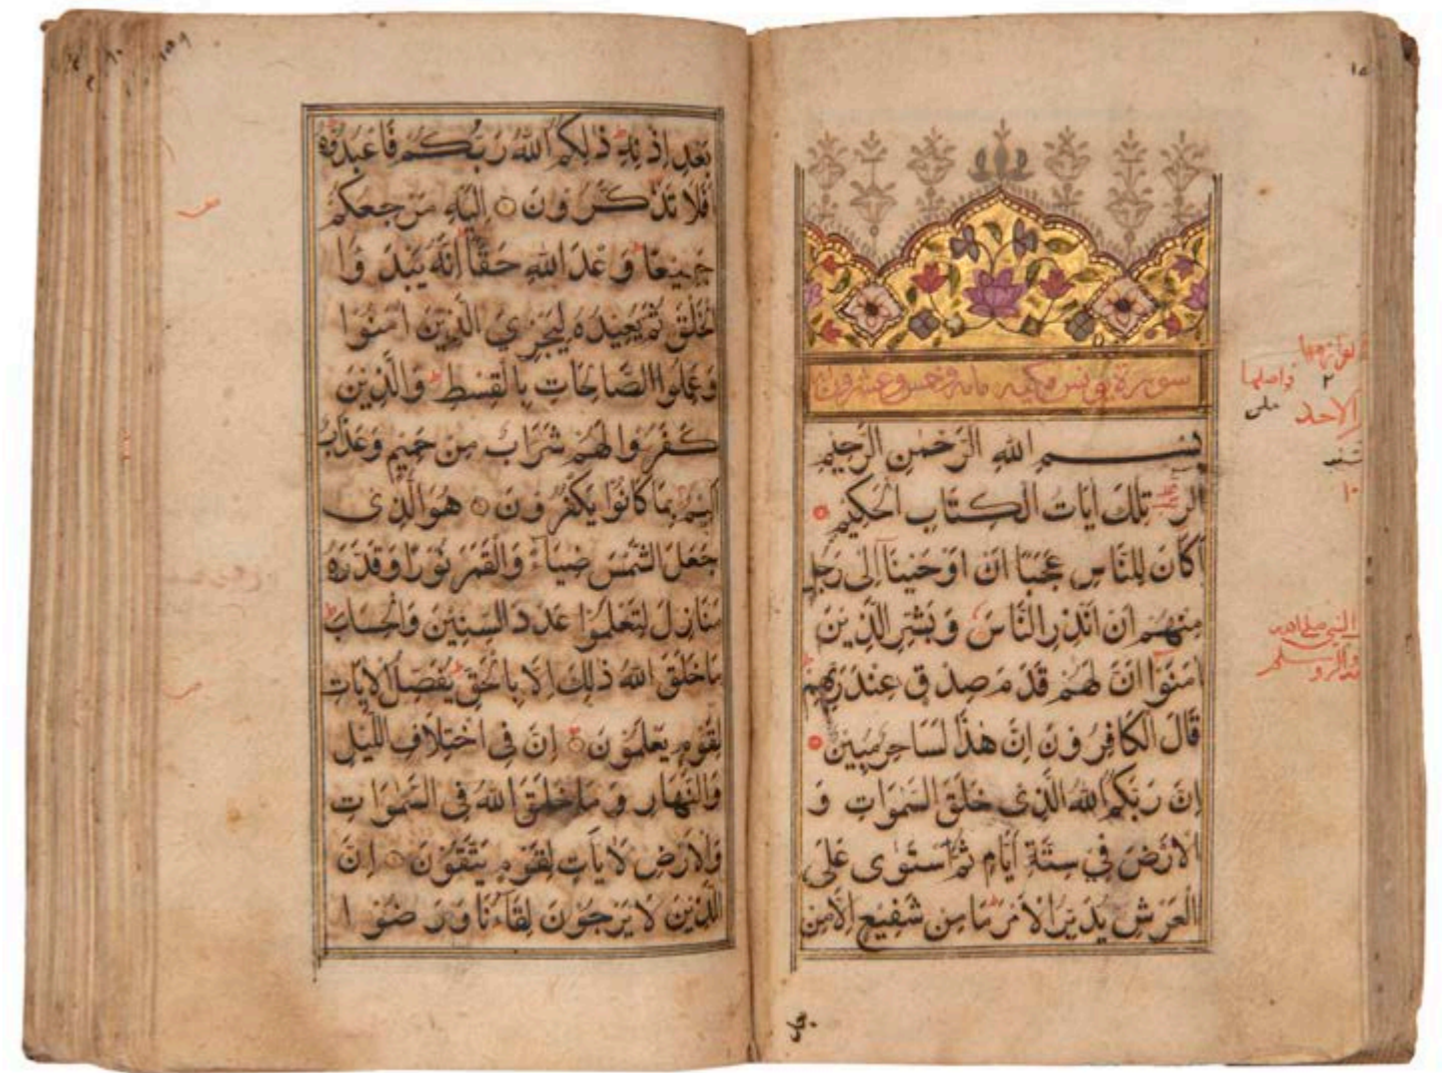 سورة يونس مكيه مائه وخمس وعشرون
بسم الله الرحمن الرحيم
الر تِلْكَ اٰيَاتُ الْكِتَابِ الْحَكِيمِ
اَكَانَ لِلنَّاسِ عَجَبًا اَنْ اَوْحَيْنَآ اِلٰى رَجُلٍ
مِنْهُمْ اَنْ اَنْذِرِ النَّاسَ وَبَشِّرِ الَّذِينَ
اٰمَنُوٓا اَنَّ لَهُمْ قَدَمَ صِدْقٍ عِنْدَ رَبِّهِمْ
قَالَ الْكَافِرُونَ اِنَّ هٰذَا لَسَاحِرٌ مُبِينٌ
اِنَّ رَبَّكُمُ اللّٰهُ الَّذِى خَلَقَ السَّمٰوَاتِ وَ
الْاَرْضَ فِي سِتَّةِ اَيَّامٍ ثُمَّ اسْتَوٰى عَلَى
الْعَرْشِ يُدَبِّرُ الْاَمْرَ مَا مِنْ شَفِيعٍ اِلَّا مِنْ
لوازمها
٢
فواصلها
ملن
الاحد
١٠
النبى صلى الله
عليه واله وسلم
بَعْدِ اِذْنِهِ ذٰلِكُمُ اللّٰهُ رَبُّكُمْ فَاعْبُدُوهُ
اَفَلَا تَذَكَّرُونَ اِلَيْهِ مَرْجِعُكُمْ
جَمِيعًا وَعْدَ اللّٰهِ حَقًّا اِنَّهُ يَبْدَؤُا
الْخَلْقَ ثُمَّ يُعِيدُهُ لِيَجْزِيَ الَّذِينَ اٰمَنُوا
وَعَمِلُوا الصَّالِحَاتِ بِالْقِسْطِ وَالَّذِينَ
كَفَرُوا لَهُمْ شَرَابٌ مِنْ حَمِيمٍ وَعَذَابٌ
اَلِيمٌ بِمَا كَانُوا يَكْفُرُونَ هُوَ الَّذِى
جَعَلَ الشَّمْسَ ضِيَآءً وَالْقَمَرَ نُورًا وَقَدَّرَهُ
مَنَازِلَ لِتَعْلَمُوا عَدَدَ السِّنِينَ وَالْحِسَابَ
مَا خَلَقَ اللّٰهُ ذٰلِكَ اِلَّا بِالْحَقِّ يُفَصِّلُ الْاٰيَاتِ
لِقَوْمٍ يَعْلَمُونَ اِنَّ فِى اخْتِلَافِ اللَّيْلِ
وَالنَّهَارِ وَ مَا خَلَقَ اللّٰهُ فِى السَّمٰوَاتِ
وَالْاَرْضِ لَاٰيَاتٍ لِقَوْمٍ يَتَّقُونَ اِنَّ
الَّذِينَ لَا يَرْجُونَ لِقَآءَنَا وَرَضُوا